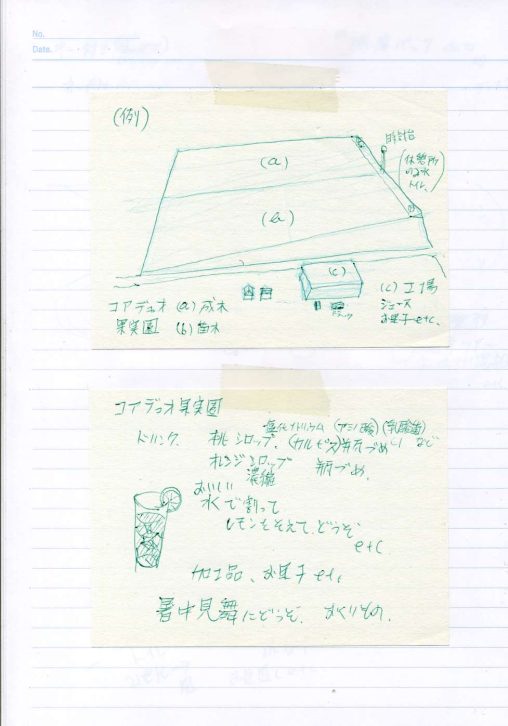 No.
Date.
(例)
(a)
時計台
(休憩所
のみ水
トイレ)
(b)
(c)
コアデュオ (a) 成木
果実園 (b) 苗木
(c) 工場
ジュース
お菓子 etc.
コイデュオ果実園
塩化ナトリウム (アミノ酸) (乳酸菌)
ドリンク. 桃シロップ. (カルピス) 弁瓦づめ など
オレンジシロップ 瓶づめ.
濃縮
おいしい
水で割って
レモンをそえて、どうぞ
etc
加工品、お菓子 etc
暑中見舞にどうぞ. おくりもの.